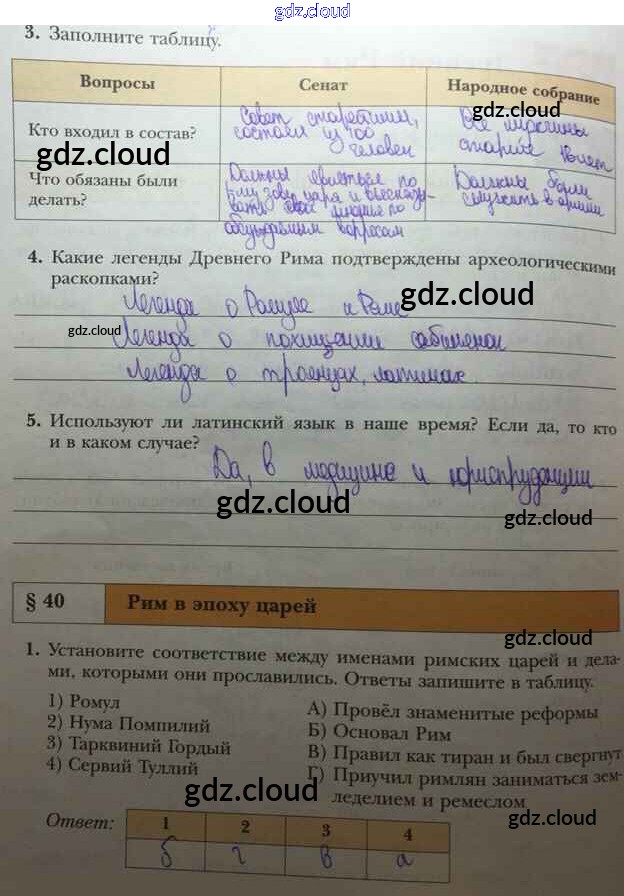 gdz.cloud
3. Заполните таблицу.
Вопросы Сенат Народное собрание
Кто входил в состав?
Совет старейшин,
состоял из 100
человек
Все мужчины
старше 18 лет
gdz.cloud
gdz.cloud
Что обязаны были
делать?
Должны явиться по
зову царя и высказы-
вать свое мнение по
обсуждаемым вопросам
Должны были
служить в армии
4. Какие легенды Древнего Рима подтверждены археологическими
раскопками?
Легенда о Ромуле и Реме
gdz.cloud
gdz.cloud
Легенда о похищении сабинянок
Легенда о троянцах, латинах
5. Используют ли латинский язык в наше время? Если да, то кто
и в каком случае?
Да, в медицине и юриспруденции
gdz.cloud
gdz.cloud
§ 40 Рим в эпоху царей
gdz.cloud
1. Установите соответствие между именами римских царей и дела-
ми, которыми они прославились. Ответы запишите в таблицу.
1) Ромул
2) Нума Помпилий
3) Тарквиний Гордый
4) Сервий Туллий
А) Провёл знаменитые реформы
Б) Основал Рим
В) Правил как тиран и был свергнут
Г) Приучил римлян заниматься зем-
леделием и ремеслом
gdz.cloud
gdz.cloud
Ответ: 1 2 3 4
б г в а